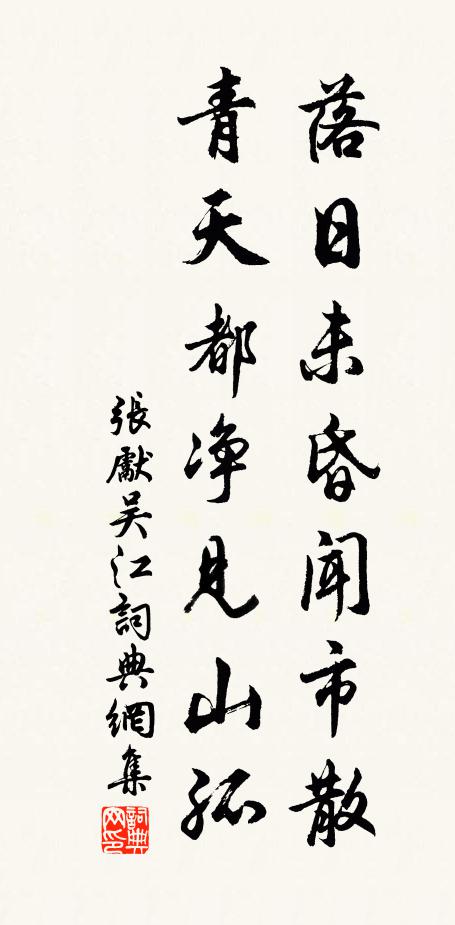 落日未昏闻市散
青天都净见山孤
張獻吴江詞典網集
詞典网印